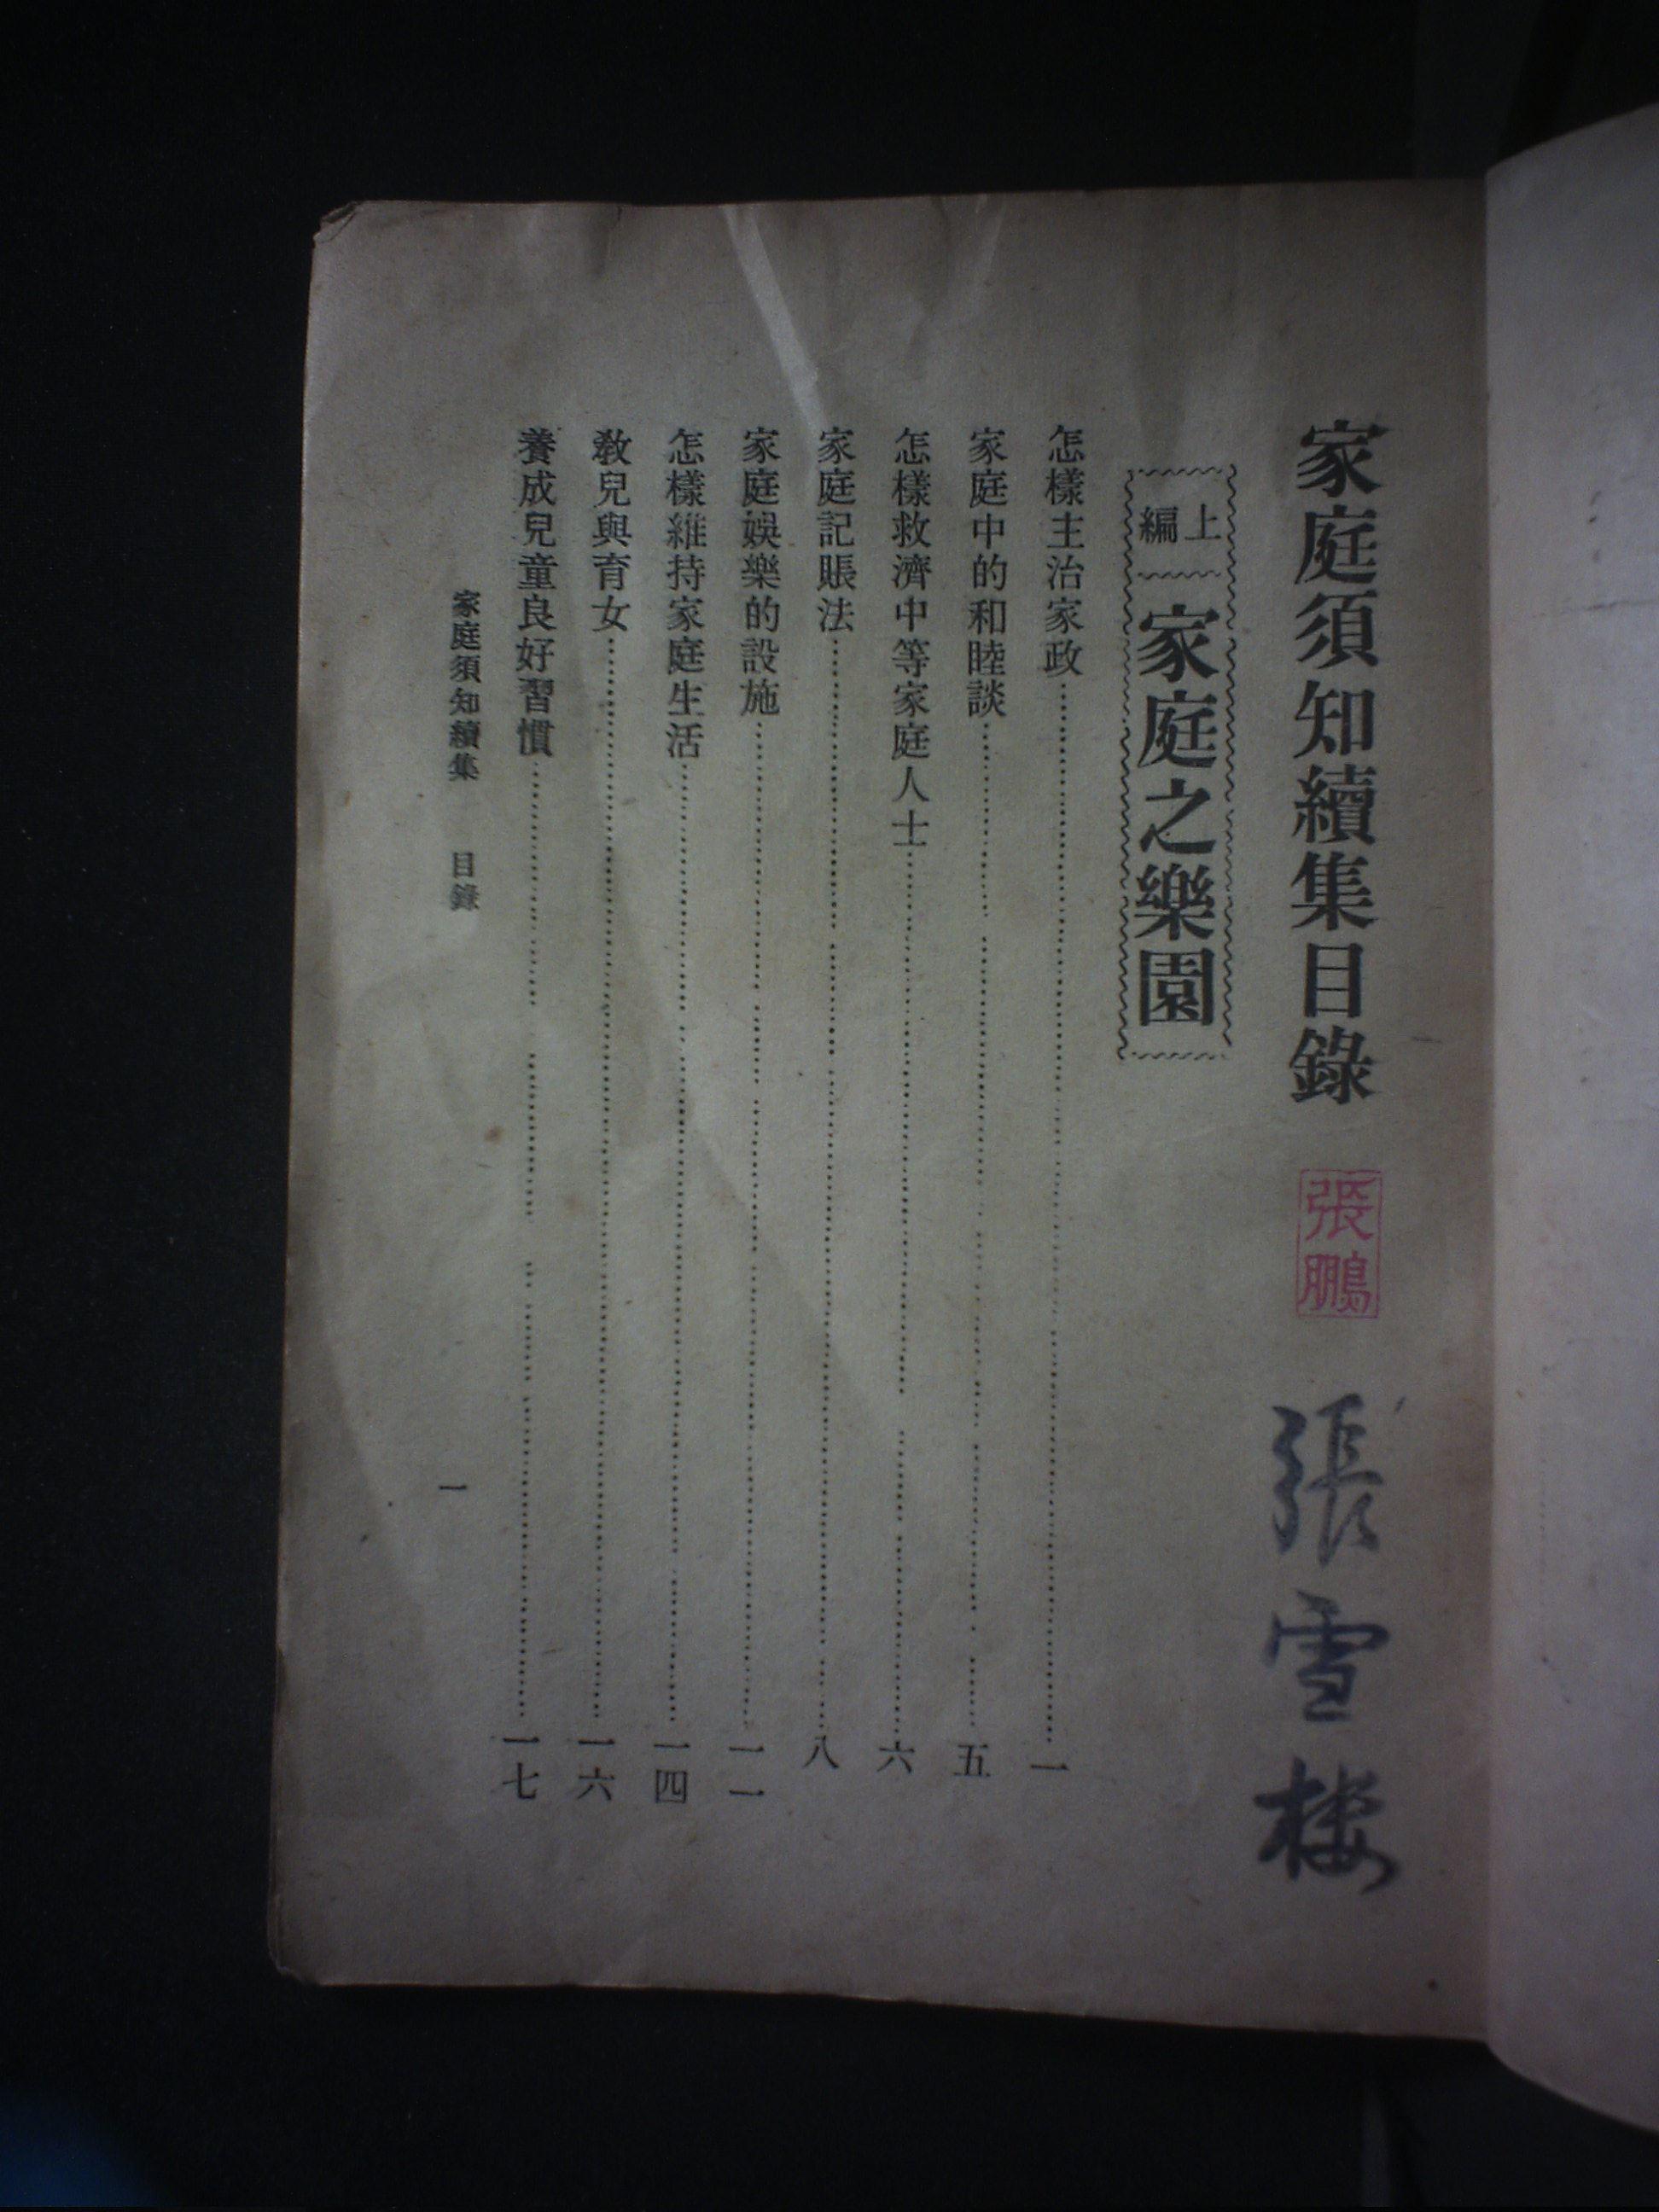 家庭須知續集目錄
張鵬
張雪楼
上編
家庭之樂園
怎樣主治家政……一
家庭中的和睦談……五
怎樣救濟中等家庭人士……六
家庭記賬法……八
家庭娛樂的設施……一一
怎樣維持家庭生活……一四
教兒與育女……一六
養成兒童良好習慣……一七
家庭須知續集　目錄
一